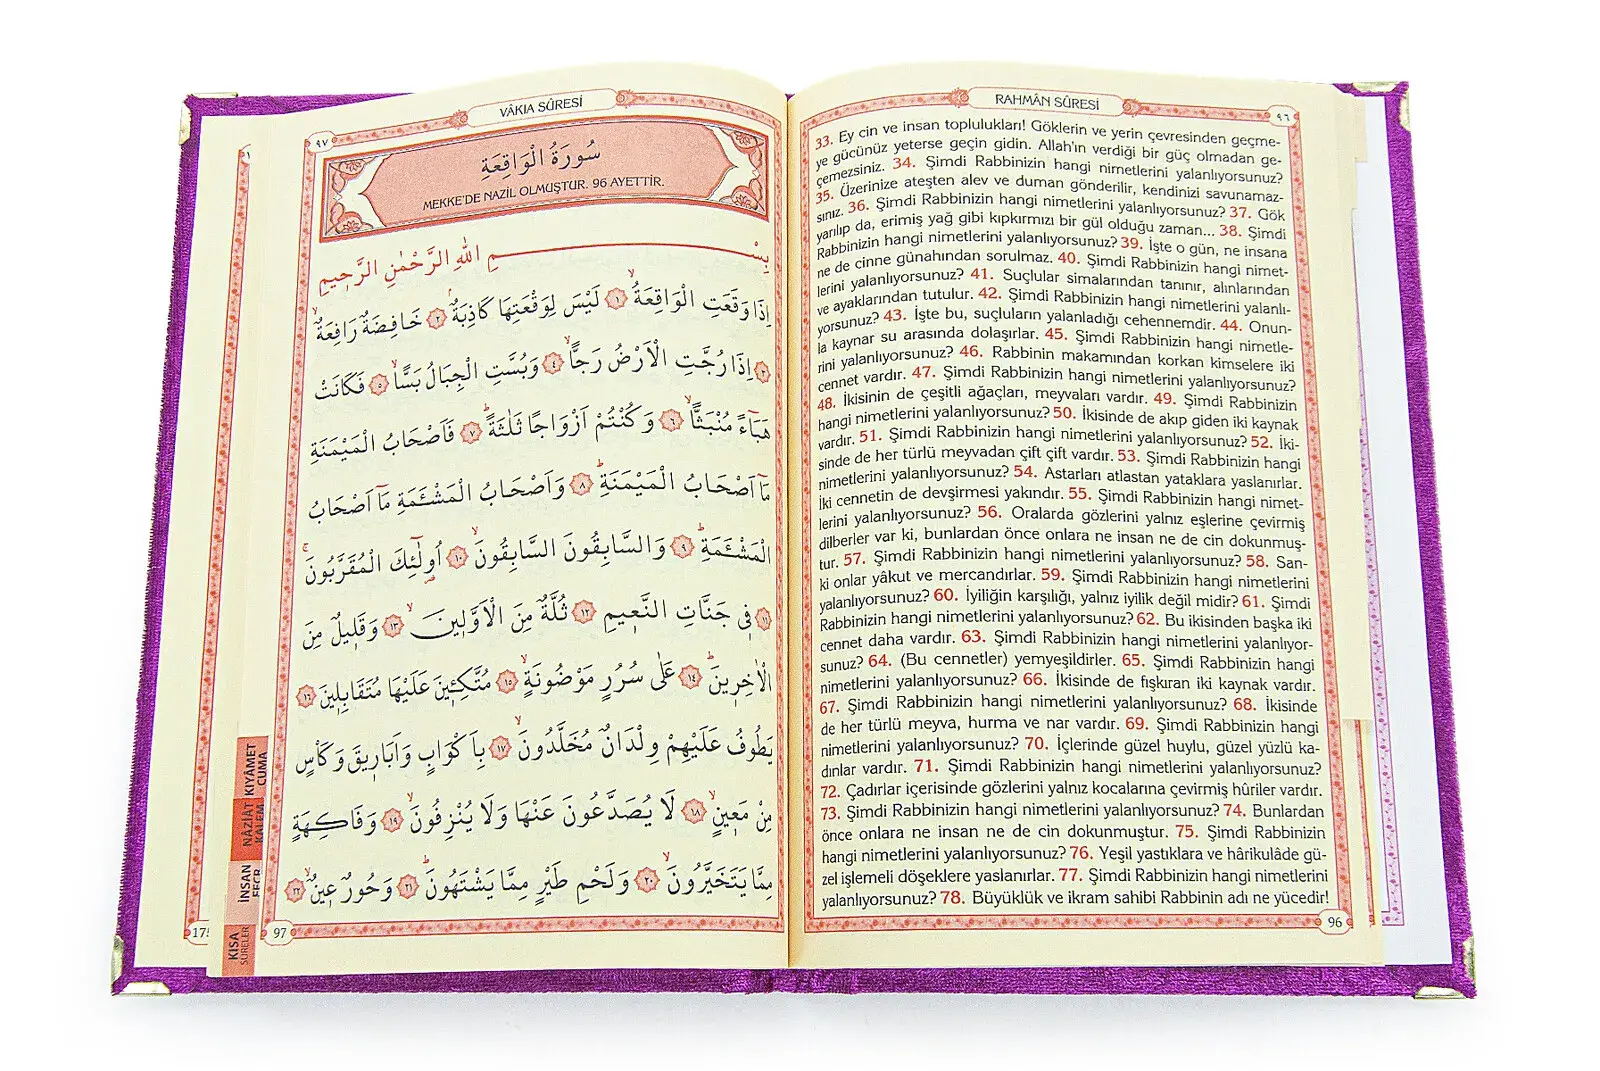 RAHMÂN SÛRESİ
٩٦
33. Ey cin ve insan toplulukları! Göklerin ve yerin çevresinden geçme-
ye gücünüz yeterse geçin gidin. Allah'ın verdiği bir güç olmadan ge-
çemezsiniz. 34. Şimdi Rabbinizin hangi nimetlerini yalanlıyorsunuz?
35. Üzerinize ateşten alev ve duman gönderilir, kendinizi savunamaz-
sınız. 36. Şimdi Rabbinizin hangi nimetlerini yalanlıyorsunuz? 37. Gök
yarılıp da, erimiş yağ gibi kıpkırmızı bir gül olduğu zaman... 38. Şimdi
Rabbinizin hangi nimetlerini yalanlıyorsunuz? 39. İşte o gün, ne insana
ne de cinne günahından sorulmaz. 40. Şimdi Rabbinizin hangi nimet-
lerini yalanlıyorsunuz? 41. Suçlular simalarından tanınır, alınlarından
ve ayaklarından tutulur. 42. Şimdi Rabbinizin hangi nimetlerini yalanlı-
yorsunuz? 43. İşte bu, suçluların yalanladığı cehennemdir. 44. Onun-
la kaynar su arasında dolaşırlar. 45. Şimdi Rabbinizin hangi nimetle-
rini yalanlıyorsunuz? 46. Rabbinin makamından korkan kimselere iki
cennet vardır. 47. Şimdi Rabbinizin hangi nimetlerini yalanlıyorsunuz?
48. İkisinin de çeşitli ağaçları, meyvaları vardır. 49. Şimdi Rabbinizin
hangi nimetlerini yalanlıyorsunuz? 50. İkisinde de akıp giden iki kaynak
vardır. 51. Şimdi Rabbinizin hangi nimetlerini yalanlıyorsunuz? 52. İki-
sinde de her türlü meyvadan çift çift vardır. 53. Şimdi Rabbinizin hangi
nimetlerini yalanlıyorsunuz? 54. Astarları atlastan yataklara yaslanırlar.
İki cennetin de devşirmesi yakındır. 55. Şimdi Rabbinizin hangi nimet-
lerini yalanlıyorsunuz? 56. Oralarda gözlerini yalnız eşlerine çevirmiş
dilberler var ki, bunlardan önce onlara ne insan ne de cin dokunmuş-
tur. 57. Şimdi Rabbinizin hangi nimetlerini yalanlıyorsunuz? 58. San-
ki onlar yâkut ve mercandırlar. 59. Şimdi Rabbinizin hangi nimetlerini
yalanlıyorsunuz? 60. İyiliğin karşılığı, yalnız iyilik değil midir? 61. Şimdi
Rabbinizin hangi nimetlerini yalanlıyorsunuz? 62. Bu ikisinden başka iki
cennet daha vardır. 63. Şimdi Rabbinizin hangi nimetlerini yalanlıyor-
sunuz? 64. (Bu cennetler) yemyeşildirler. 65. Şimdi Rabbinizin hangi
nimetlerini yalanlıyorsunuz? 66. İkisinde de fışkıran iki kaynak vardır.
67. Şimdi Rabbinizin hangi nimetlerini yalanlıyorsunuz? 68. İkisinde
de her türlü meyva, hurma ve nar vardır. 69. Şimdi Rabbinizin hangi
nimetlerini yalanlıyorsunuz? 70. İçlerinde güzel huylu, güzel yüzlü ka-
dınlar vardır. 71. Şimdi Rabbinizin hangi nimetlerini yalanlıyorsunuz?
72. Çadırlar içerisinde gözlerini yalnız kocalarına çevirmiş hûriler vardır.
73. Şimdi Rabbinizin hangi nimetlerini yalanlıyorsunuz? 74. Bunlardan
önce onlara ne insan ne de cin dokunmuştur. 75. Şimdi Rabbinizin
hangi nimetlerini yalanlıyorsunuz? 76. Yeşil yastıklara ve hârikulâde gü-
zel işlemeli döşeklere yaslanırlar. 77. Şimdi Rabbinizin hangi nimetlerini
yalanlıyorsunuz? 78. Büyüklük ve ikram sahibi Rabbinin adı ne yücedir!
96
VÂKIA SÛRESİ
٩٧
سُورَةُ الْوَاقِعَةِ
MEKKE'DE NAZİL OLMUŞTUR. 96 AYETTİR.
بِسْمِ اللهِ الرَّحْمٰنِ الرَّحِيمِ
اِذَا وَقَعَتِ الْوَاقِعَةُۙ ١ لَيْسَ لِوَقْعَتِهَا كَاذِبَةٌۢ ٢ خَافِضَةٌ رَافِعَةٌۙ
٣ اِذَا رُجَّتِ الْاَرْضُ رَجًّاۙ ٤ وَبُسَّتِ الْجِبَالُ بَسًّاۙ ٥ فَكَانَتْ
هَبَٓاءً مُنْبَثًّاۙ ٦ وَكُنْتُمْ اَزْوَاجًا ثَلٰثَةًۜ ٧ فَاَصْحَابُ الْمَيْمَنَةِ
مَٓا اَصْحَابُ الْمَيْمَنَةِۜ ٨ وَاَصْحَابُ الْمَشْـَٔمَةِ مَٓا اَصْحَابُ
الْمَشْـَٔمَةِۜ ٩ وَالسَّابِقُونَ السَّابِقُونَۙ ١٠ اُو۬لٰٓئِكَ الْمُقَرَّبُونَۚ
١١ فِي جَنَّاتِ النَّعِيمِ ١٢ ثُلَّةٌ مِنَ الْاَوَّلِينَۙ ١٣ وَقَلِيلٌ مِنَ
الْاٰخِرِينَۜ ١٤ عَلٰى سُرُرٍ مَوْضُونَةٍۙ ١٥ مُتَّكِـِٔينَ عَلَيْهَا مُتَقَابِلِينَ ١٦
يَطُوفُ عَلَيْهِمْ وِلْدَانٌ مُخَلَّدُونَۙ ١٧ بِاَكْوَابٍ وَاَبَارِيقَ وَكَأْسٍ
مِنْ مَعِينٍۙ ١٨ لَا يُصَدَّعُونَ عَنْهَا وَلَا يُنْزِفُونَۙ ١٩ وَفَاكِهَةٍ
مِمَّا يَتَخَيَّرُونَۙ ٢٠ وَلَحْمِ طَيْرٍ مِمَّا يَشْتَهُونَۜ ٢١ وَحُورٌ عِينٌۙ ٢٢
97
KIYÂMET
CUMA
NÂZİÂT
KALEM
İNSAN
FECR
KISA
SÛRELER
175